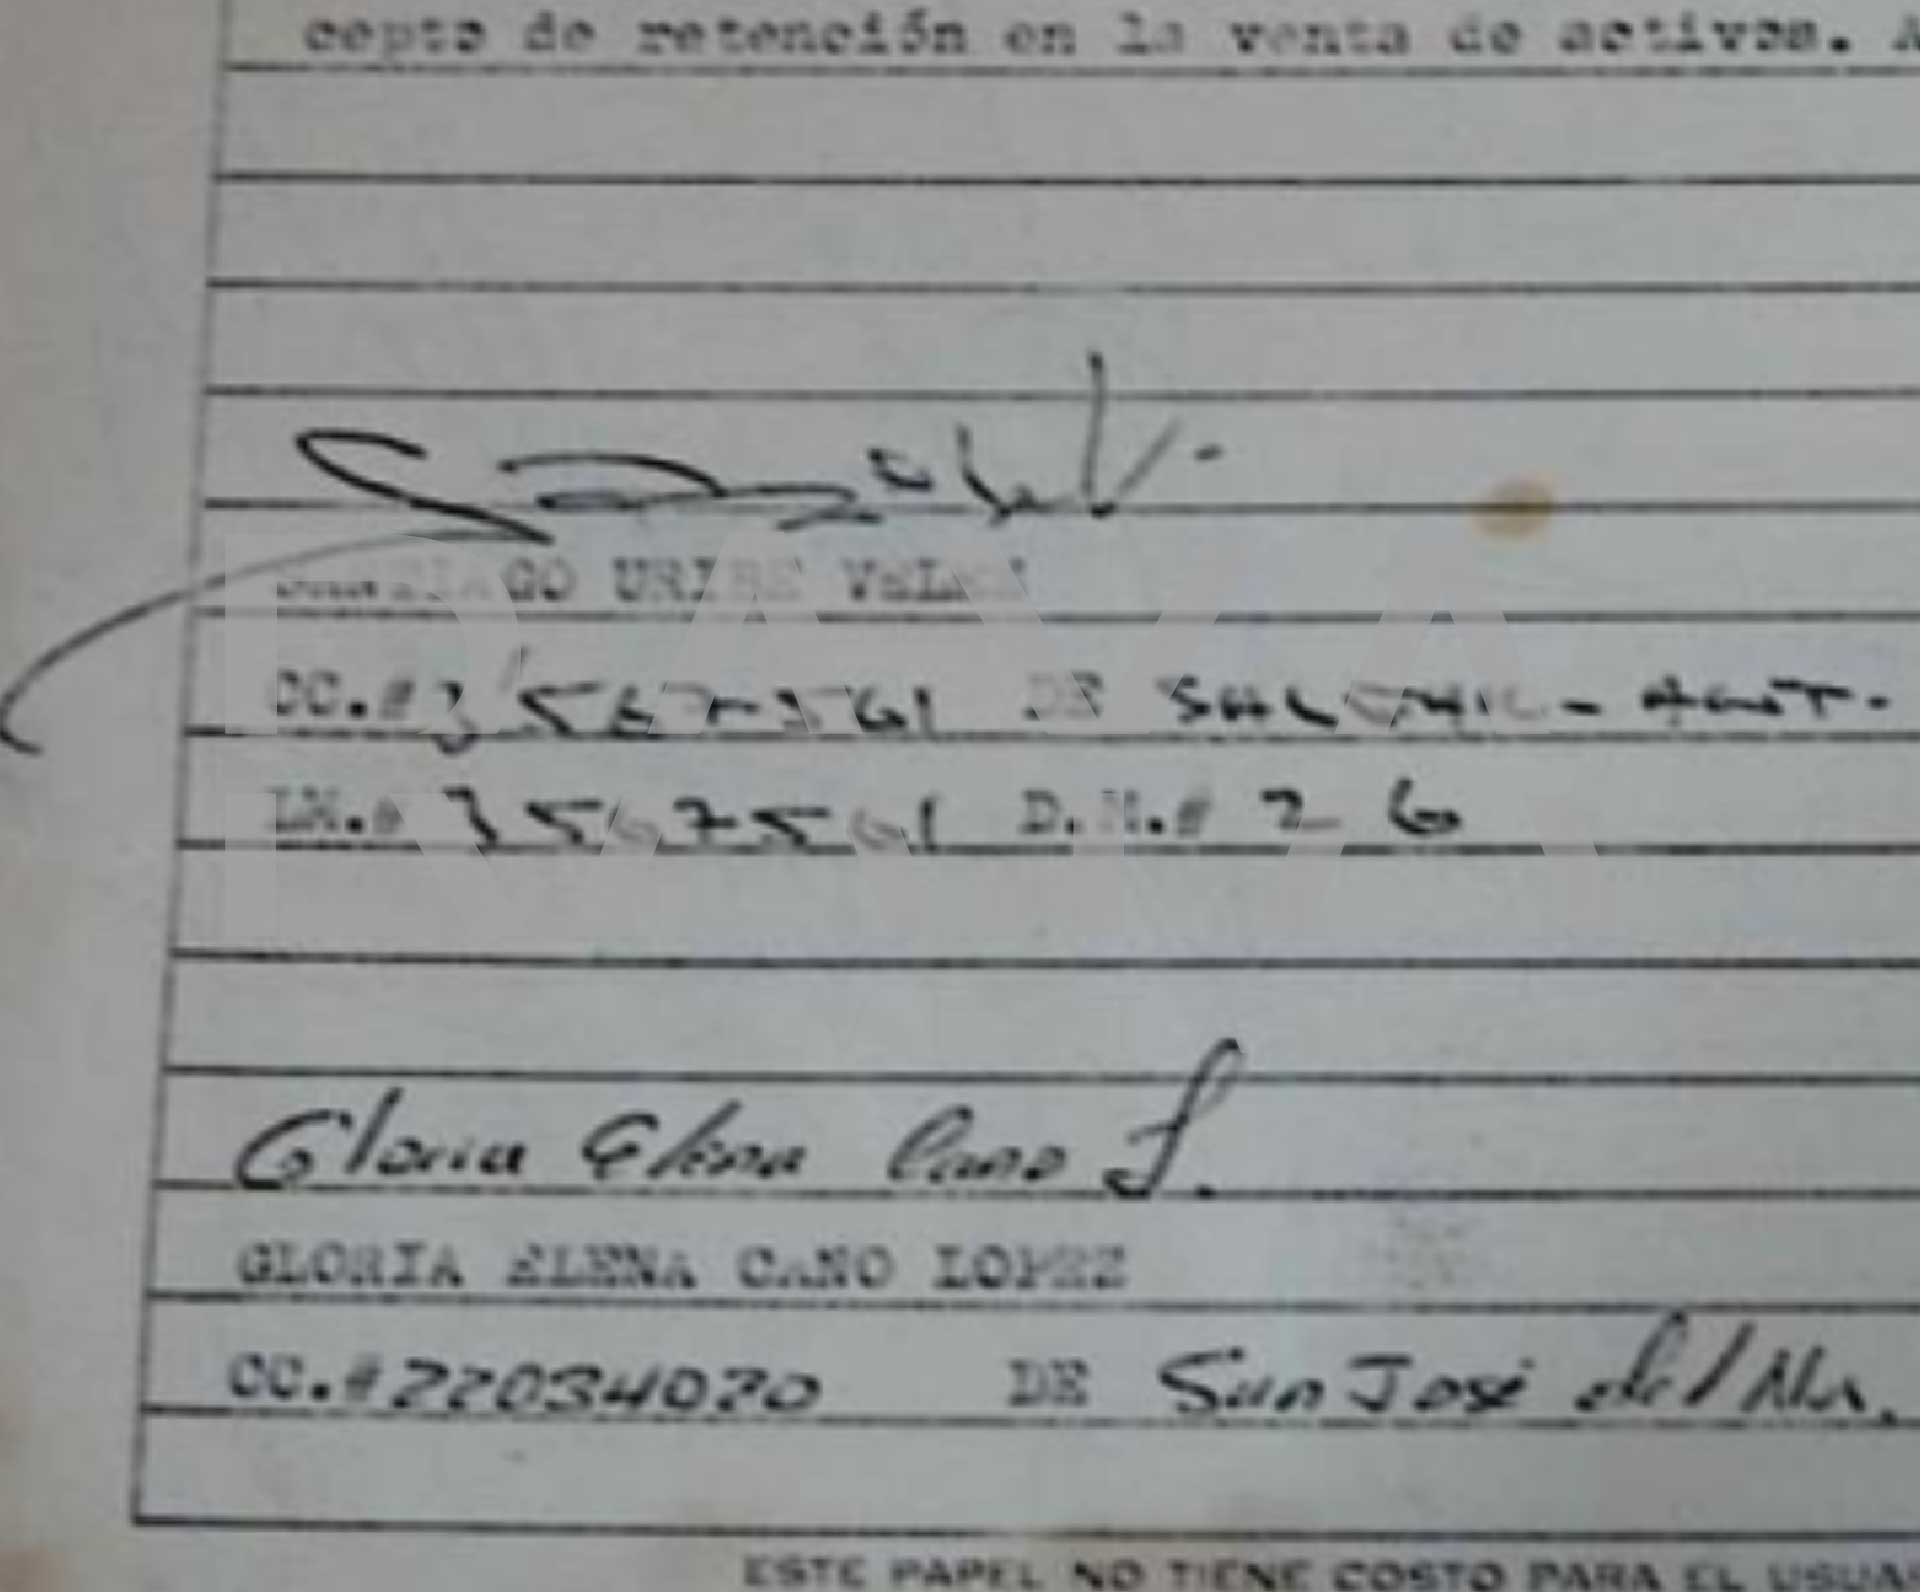 cepto de retención en la venta de activos. A
SANTIAGO URIBE VELEZ
CC.# 3567561 DE SALGAR - ANT.
LM.# 3567561 D.M.# 26
Gloria Elena Cano L.
GLORIA ELENA CANO LOPEZ
CC.#22034020 DE San José del Nu.
ESTE PAPEL NO TIENE COSTO PARA EL USUA
RAYA